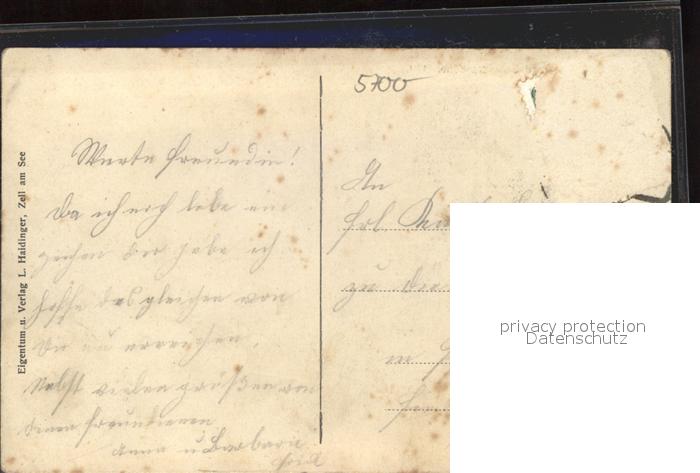 5700
Eigentum u. Verlag L. Haidinger, Zell am See
Werte Freundin!
Da ich noch lebe ein
zeichen dir gebe ich
hoffe desgleichen von
Dir zu
Nebst vielen grüßen von
deinen Freundinen
Anna u Barbara
An
Frl.
zu
privacy protection
Datenschutz